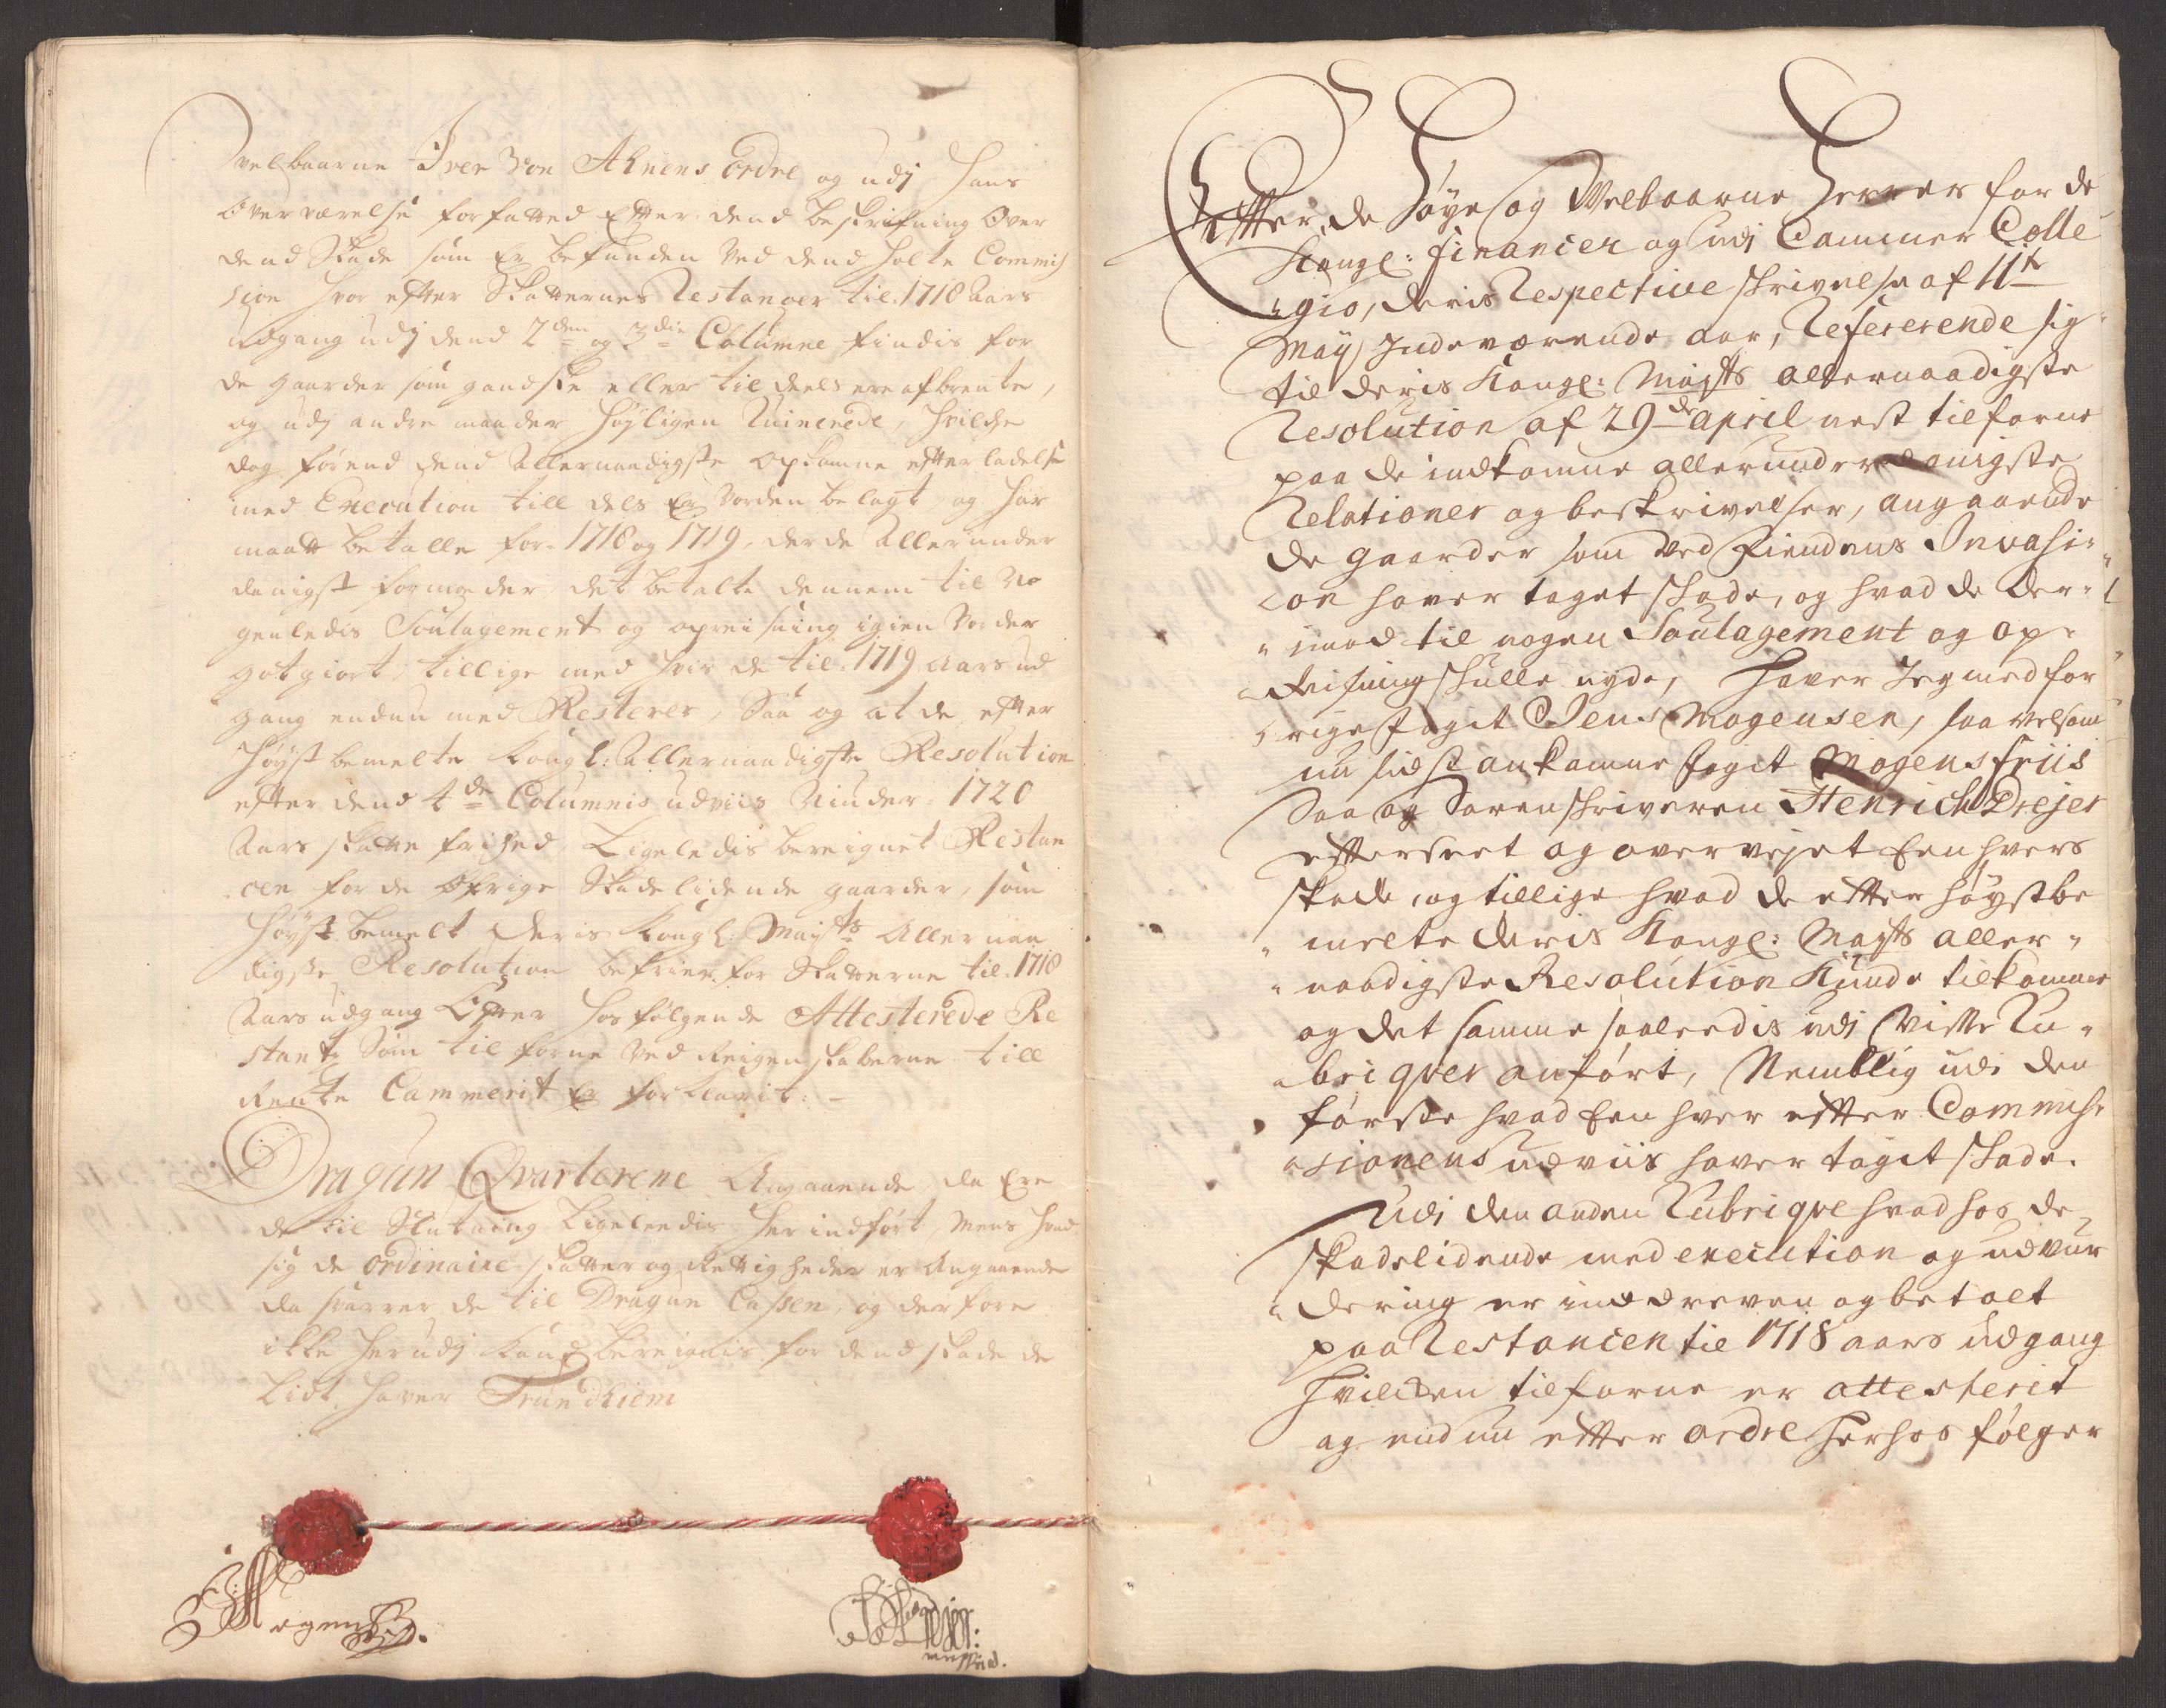 Velbaarne Iver Von Ahnens ordre og udj hans
Overværelse forfatted Efter dend beskrifning Over
dend Skade som Er befunden Ved dend holte Commis
sion hvor efter Skatternes Restancer til 1718 Aars
udgang udj dend 2den og 3die Columne findis for
de gaarder som gandske eller til deels ere afbrente,
og udj andre maader Høyligen Ruinerede, hvilche
dog førend dend Allernaadigste ankomne efterladelse
med Execution till dels Er Vorden belagt og har
maatt betalle for 1718 og 1719, der de Allerunder
danigst formoder, det betalte dennem til No
genledis Soulagement og opreisning igien Vorder
gotgiort, tillige med hvis de til 1719 Aars ud
gang endnu med Resterer, Saa og at de efter
Høyst bemelte Kongl: Allernaadigste Resolution
efter dend 4de Columnis udviis Niuder 1720
Aars skatte frihed, Ligeledis bereignet Restan
cen for de Øfrige Skadelidende gaarder, som
Høyst bemelt Deris Kongl: Mayts Allernaa
digste Resolution befrier for Skatterne til 1718
Aars udgang Efter hosfølgende Attesterede Re
stants Som til forne Ved Reigenskaberne till
Rente Cammerit Er forklarit. –
Dragun Qvarterene Angaaende da Ere
de til Slutning Ligeledis her indført, Mens hvad
sig de ordinaire skatter og Rettigheder er Angaaende
da svarrer de til Dragun Cassen, og derfore
ikke her udj kand bereignis for dend skade de
Lidt haver Trundhiem

Efter de Høye og Velbaarne Herrer for de
Kongl: Financier og udi Cammer Colle
gio, deris Respective skrivelse af 11te
May Indeværende aar, Refererende sig
til deris Kongl: Mayts allernaadigste
Resolution af 29de april nest tilforne
paa de indkomne allerunderdanigste
Relationer og beskrivelser, angaaende
de gaarder som Ved Fiendens Invasi-
on haver taget skade, og hvad de der-
imod til nogen Soulagement og op-
Reisning skulle nyde, haver Jeg med for
rige fogit Jens Mogensen, saa velsom
nu sidst ankomne fogit Mogens Friis
Saa og Sorenskriveren Henrich Drejer
efterseet og overvejet Een hvers
skade, og tillige hvad de efter høystbe
melte deris Kongl: Mayts aller-
naadigste Resolution Kunde tilkomme
og det samme saaleedis udi Visse Ru-
briqver anført, Nemblig udi den
første hvad Een hver efter Commis-
sionens udviis haver tagit skade.
Udi den anden Rubriqve hvad hos de
skadelidende med execution og udvur
dering er inddreven og betalt
paa Restancen til 1718 aars udgang
hvilcken tilforne er attesterit
og end nu efter ordre herhos følger